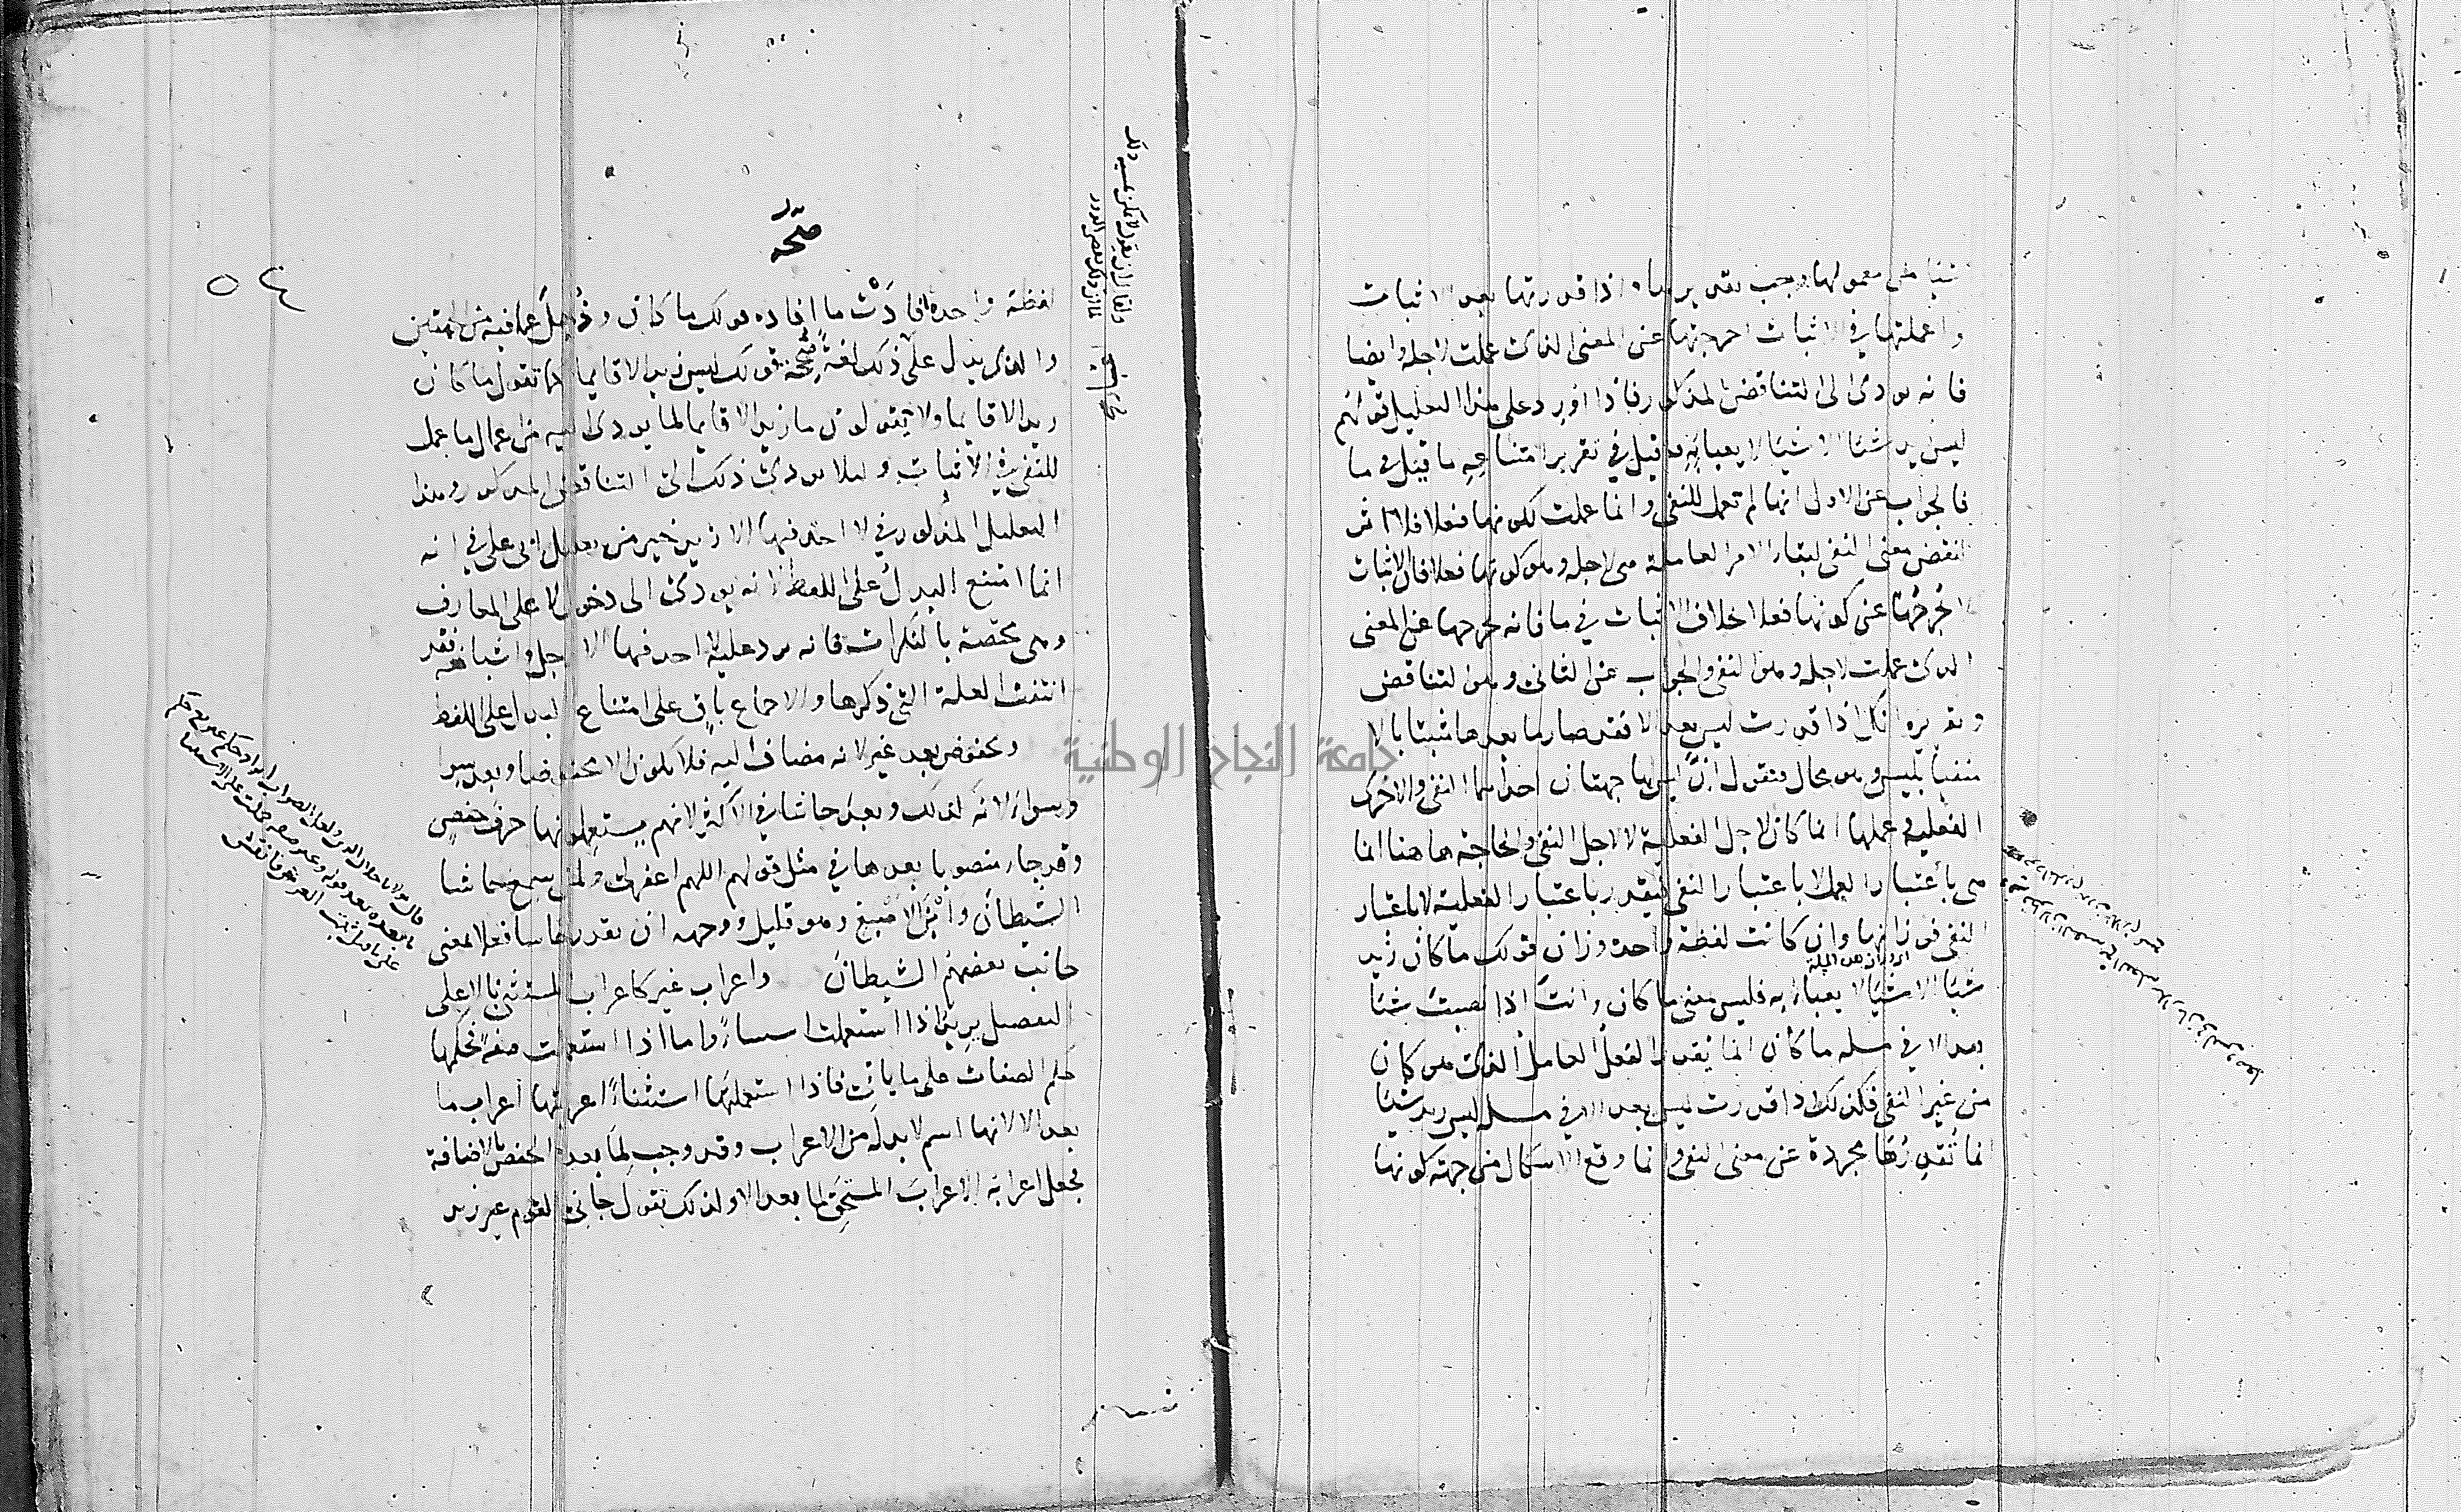 شيئا من معمولها وجب تقديرها واذا قدرتها بعد الاثبات
واعملتها في الاثبات اخرجتها عن المعنى الذي عملت لاجله وايضا
فانه يودى الى التناقض المذكور فاذا اورد على هذا التعليل قولهم
ليس زيد شيئا الا شيئا لا يعبا به وقد قيل في تقرير امتناعه ما قيل في ما
فالجواب عن الاول انها لم تعمل للنفى وانما عملت لكونها فعلا فلا اثر
لنقض معنى النفى لبقا الامر العاملة هى لاجله وهو كونها فعلا فان الاثبات
لا يخرجها عن كونها فعلا خلاف الاثبات في ما فانه يخرجها عن المعنى
الذى عملت لاجله وهو النفى والجواب عن الثانى وهو التناقض
وتقريره انك اذا قدرت ليس بعد الا فقد صار ما بعدها مثبتا بالا
منفيا بليس وهو محال فنقول ان ليس لها جهتان احداهما النفى والاخرى
الفعلية وعملها انما كان لاجل الفعلية لا لاجل النفى والحاجة هاهنا انما
هى باعتبار العمل لا باعتبار النفى فيقدر باعتبار الفعلية لا باعتبار
النفى فوزانها وان كانت لفظة واحدة وزان قولك ما كان زيد
شيئا الا شيئا لا يعبا به فليس معنى ما كان وانت اذا نصبت شيئا
بعد الا في مسلة ما كان انما تقدر الفعل العامل الذى هو كان
من غير النفى فكذلك اذا قدرت ليس بعد الا في مسلة ليس زيد شيئا
انما تقدرها مجردة عن معنى النفى وانما وقع الاشكال من جهة كونها
صحه
لفظة واحدة افادت ما افاده قولك ما كان وذهل عما فيه من الجهتين
والذى يدل على ذلك لغة صحة قولك ليس زيد الا قايما كما تقول ما كان
زيد الا قايما ولا يقولون ما زيد الا قايما لما يودى اليه من اعمال ما عمل
للنفى في الاثبات وليلا يودى ذلك الى التناقض المذكور وهذا
التعليل المذكور في لا احد فيها الا زيد خير من تعليل ابى على في انه
انما امتنع البدل على اللفظ لانه يودى الى دخول لا على المعارف
وهى مختصة بالنكرات فانه يرد عليه لا احد فيها الا رجل واشباهه فقد
انتفت العلة التى ذكرها والاجماع باق على امتناع البدل على اللفظ
ومخفوض بعد غير لانه مضاف اليه فلا يكون الا مخفوضا وبعد سوا
وسواء لانه كذلك وبعد حاشا في الاكثر لانهم يستعملونها حرف خفض
وقد جاء منصوبا بعدها في مثل قولهم اللهم اغفر لى ولمن سمع حاشا
الشيطان وابن الاصبغ وهو قليل ووجهه ان تقدر حاشا فعلا بمعنى
جانب بعضهم الشيطان واعراب غير كاعراب المستثنى بالا على
التفصيل يريد اذا استعملت استثناء واما اذا استعملت صفة فحكمها
حكم الصفات على ما ياتى فاذا استعملتها استثناء اعربتها اعراب ما
بعد الا لانها اسم لا بد له من الاعراب وقد وجب لما بعد الخفض بالاضافة
فجعل اعرابه الاعراب المستحق لما بعد الا ولذلك تقول جانى القوم غير زيد
جامعة النجاح الوطنية